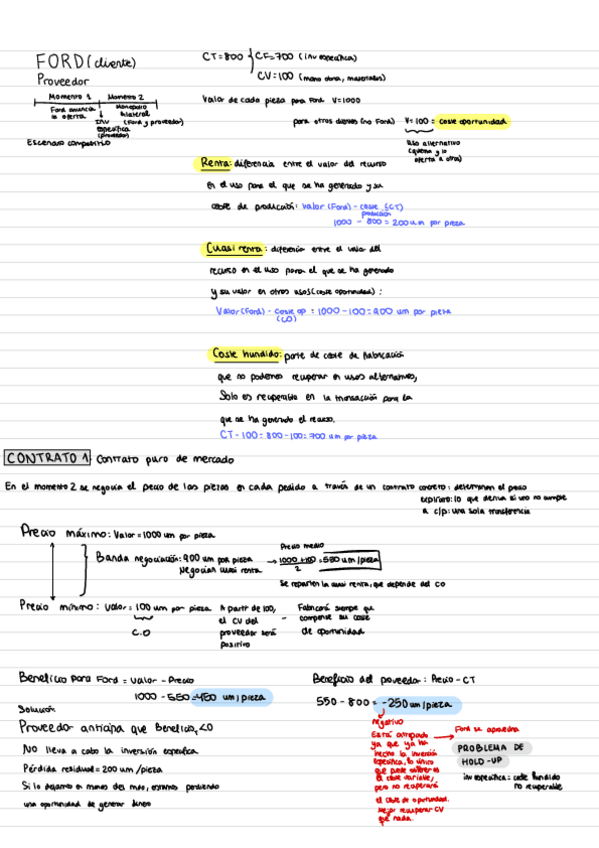 FORD (cliente)
Proveedor
CT=800 { CF=700 (inv específica)
CV=100 (mano obra, materiales)
Momento 1 Momento 2
Ford anuncia la oferta
Inv específica (proveedor)
Monopolio bilateral (Ford y proveedor)
Escenario competitivo
Valor de cada pieza para Ford V=1000
para otros clientes (no Ford) V=100 = coste oportunidad
Uso alternativo
oferta a otros)
Renta: diferencia entre el valor del recurso
en el uso para el que se ha generado y su
coste de producción: Valor (Ford) - coste (CT)
producción
1000 - 800 = 200 um por pieza
Cuasi renta: diferencia entre el valor del
recurso en el uso para el que se ha generado
y su valor en otros usos (coste oportunidad) :
Valor (Ford) - coste op = 1000 - 100 = 900 um por pieza
(CO)
Coste hundido: parte de coste de fabricación
que no podemos recuperar en usos alternativos,
Solo es recuperable en la transacción para la
que se ha generado el recurso.
CT - 100 = 800 - 100 = 700 um por pieza
CONTRATO 1 Contrato puro de mercado
En el momento 2 se negocia el precio de las piezas en cada pedido a través de un contrato concreto: determinan el precio
explícito: lo que deriva si uno no cumple
a c/p: una sola transferencia
Precio máximo: Valor = 1000 um por pieza
Banda negociación: 900 um por pieza
Negocian cuasi renta
Precio medio
1000+100 = 550 um/pieza
2
Se reparten la cuasi renta, que depende del CO
Precio mínimo: Valor = 100 um por pieza
C.O
A partir de 100, el CV del proveedor será positivo
- Fabricará siempre que compense su coste de oportunidad
Beneficio para Ford = Valor - Precio
1000 - 550 = 450 um/pieza
Beneficio del proveedor: Precio - CT
550 - 800 = -250 um/pieza
Solución:
Proveedor anticipa que Beneficio<0
No lleva a cabo la inversión específica
Pérdida residual = 200 um/pieza
Si lo dejamos en manos del mdo, estamos perdiendo
una oportunidad de generar dinero
negativo
Está atrapado
ya que ya ha
hecho la inversión
específica, lo único
que puede
el coste variable,
pero no recuperará
el coste de oportunidad.
Mejor recuperar CV
que nada.
Ford se aprovecha
PROBLEMA DE
HOLD-UP
inv específica = coste hundido
no recuperable